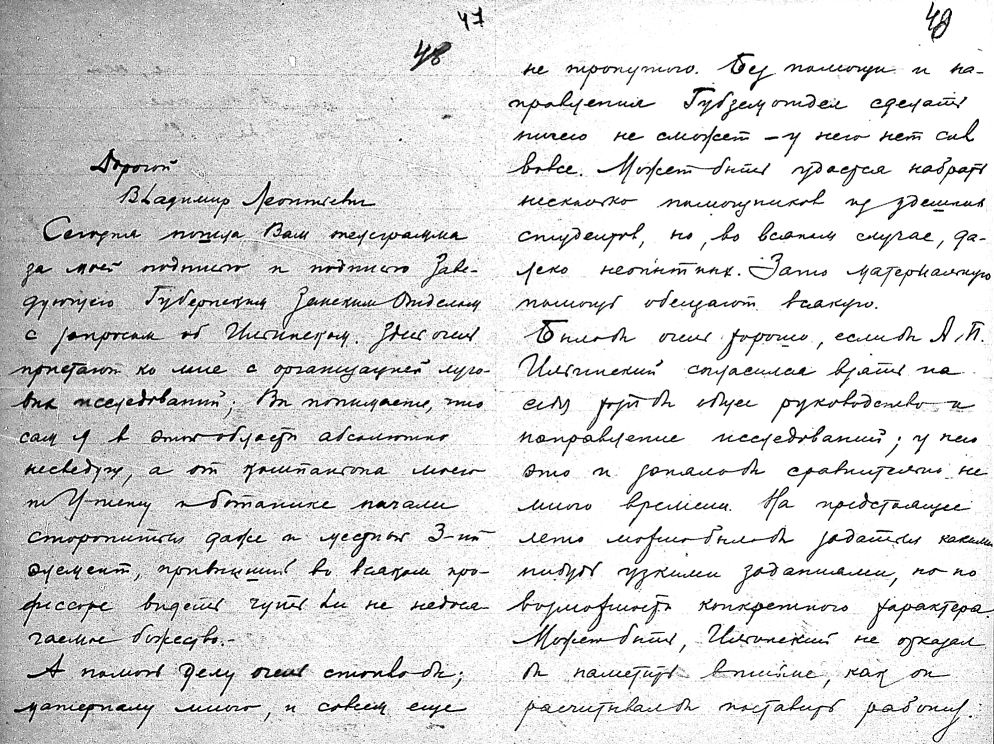 47
48
Дорогой
Владимир Леонтьевич
Сегодня пошла Вам телеграмма
за моей подписью и подписью Заве-
дующего Губернским Земским Отделом
с запросом об Ильинском. Здесь очень
пристают ко мне с организацией луго-
вых исследований; Вы понимаете, что
сам я в этой области абсолютно
несведущ, а от компаниона моего
по У-ту и ботанике начали
сторониться даже и местный 3-ий
элемент, привыкший во всяком про-
фессоре видеть чуть ли не недося
гаемое божество.-
А помочь делу очень стоило бы;
материалу много, и совсем еще
49
не тронутого. Без помощи и на-
правления Губземотдел сделать
ничего не сможет – у него нет сил
вовсе. Может быть удастся набрать
несколько помощников из здешних
студентов, но, во всяком случае, да-
леко неопытных. Зато материальную
помощь обещают всякую.
Было бы очень хорошо, если бы А.П.
Ильинский согласился взять на
себя хотя бы общее руководство и
направление исследований; у него
это и заняло бы сравнительно не
много времени. На предстоящее
лето можно было бы задаться какими
нибудь узкими заданиями, но по
возможности конкретного характера.
Может быть, Ильинский не отказал
бы наметить вкратце, как он
расчитывал бы поставить работу.